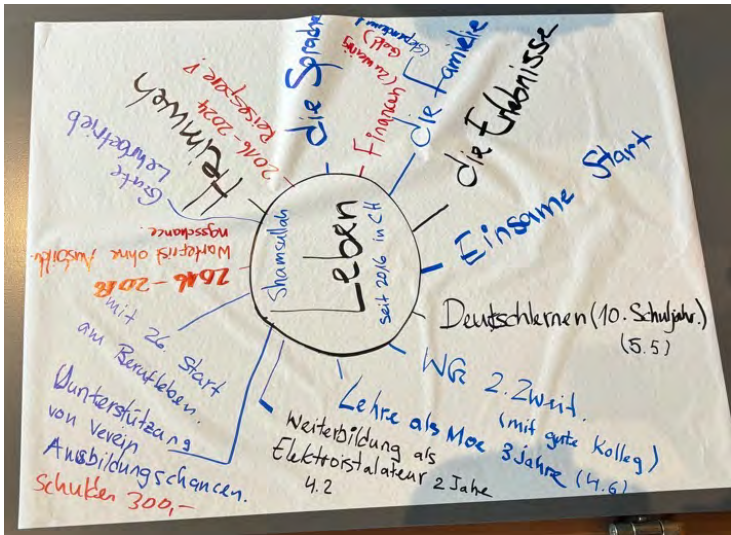 Shamsullah
Leben
seit 2016 in CH
die Sprache
Finanzen (zu wenig
Geld)
die Familie
die Erlebnisse
Einsame Start
Deutschlernen (10. Schuljahr.)
(5.5)
WG 2. Zweit.
(mit gute Kolleg)
Lehre als Moe 3 Jahre (4.6)
Weiterbildung als
Elektroistalateur 2 Jahe
4.2
Dunterstützung
von Verein
Ausbildungschancen.
Schulden 300,-
mit 26. Start
am Berufleben.
2016 - 2018
Wartefrist ohne Ausbildu
ngsschance.
Gute
Lehrbetrieb
Heimweh
2016 - 2024
Reisesperre!